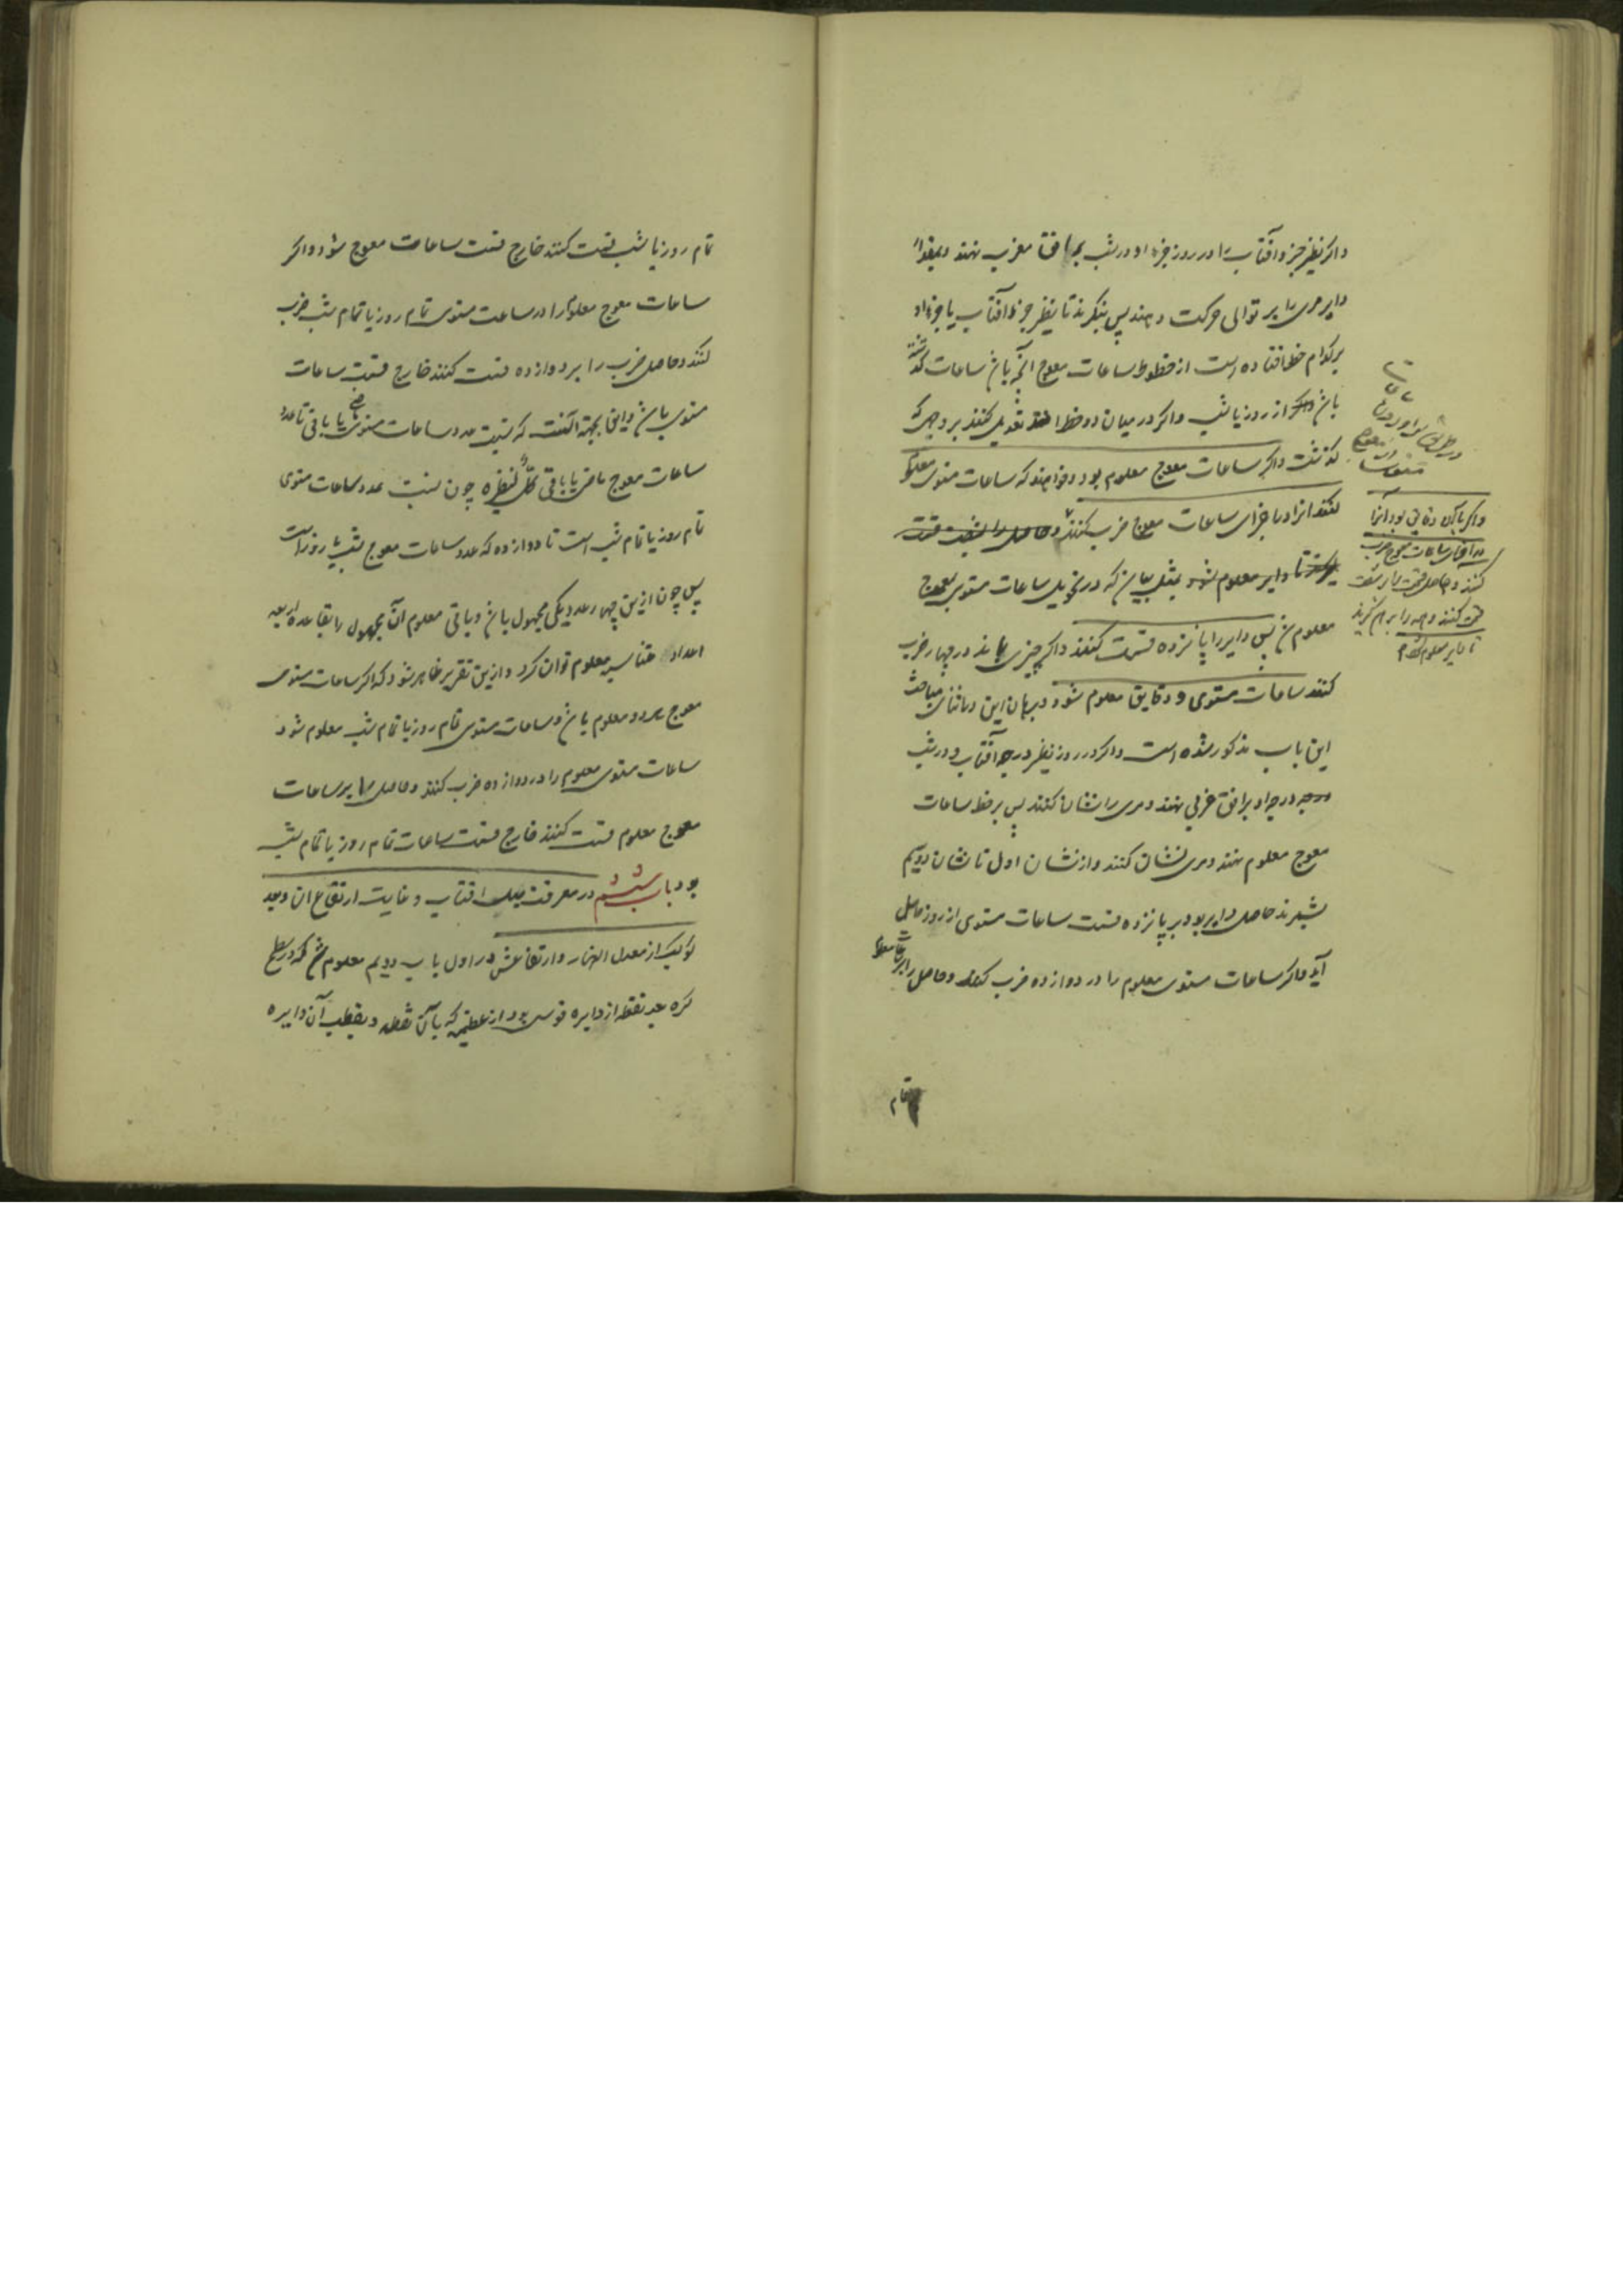 واکر نظیر جزو آفتاب را در روز و جزء او در شب بر افق مغرب نهند و بمقدار
دایر مری را بر توالی حرکت دهند پس بنکرند تا نظیر جزء آفتاب یا جزء او
بر کدام خط افتاده است از خطوط ساعات معوج آنچه باشد ساعات کذشته
باشد از روز یا شب واکر در میان دو خط افتد تعدیل کنند بر وجهی که
کذشت واکر ساعات معوج معلوم بود و خواهند که ساعات مستوی معلوم
کنند آنرا در اجزای ساعات معوج ضرب کنند و حاصل را بشصت قسمت
کنند تا دایر معلوم شود بمثل بیان که در تحویل ساعات مستوی بمعوج
معلوم شد پس دایر را بپانزده قسمت کنند واکر چیزی بماند در چهار ضرب
کنند ساعات مستوی و دقایق معلوم شود و برهان این در اثنای مباحث
این باب مذکور شده است واکر در روز نظیر درجه آفتاب و در شب
درجه او بر افق غربی نهند و مری را نشان کنند پس بر خط ساعات
معوج معلوم نهند و مری نشان کنند و از نشان اول تا نشان دویم
بشمرند حاصل دایر بود بر پانزده قسمت ساعات مستوی از روز حاصل
آید واکر ساعات مستوی معلوم را در دوازده ضرب کنند و حاصل را بر ساعات
تمام
واکر با آن دقایق بود آنرا
در اجزای ساعات معوج ضرب
کنند و حاصل قسمت را بر شصت
قسمت کنند و همه را بر هم کیرند
تا دایر معلوم شود
تمام روز یا شب قسمت کنند خارج قسمت ساعات معوج شود واکر
ساعات معوج معلوم را در ساعت مستوی تمام روز یا تمام شب ضرب
کنند و حاصل ضرب را بر دوازده قسمت کنند خارج قسمت ساعات
مستوی باشد و این بجهة آنست که نسبت عدد ساعات مستوی ماضی یا باقی تا عدد
ساعات معوج ماضی یا باقی کل لنظیره چون نسبت عدد ساعات مستوی
تمام روز یا تمام شب است تا دوازده که عدد ساعات معوج شب یا روز است
پس چون ازین چهار عدد یکی مجهول باشد و باقی معلوم آن مجهول را بقاعده اربعه
اعداد متناسبه معلوم توان کرد و ازین تقریر ظاهر شود که اکر ساعات مستوی
معوج هر دو معلوم باشد و ساعات مستوی تمام روز یا تمام شب معلوم شود
ساعات مستوی معلوم را در دوازده ضرب کنند و حاصل را بر ساعات
معوج معلوم قسمت کنند خارج قسمت ساعات تمام روز یا تمام شب
بود باب ششم در معرفت میل آفتاب و غایت ارتفاع آن و بعد
کوکب از معدل النهار و ارتفاعش در اول باب دویم معلوم شد که در سطح
کره بعد نقطه از دایره قوسی بود از عظیمه که بآن نقطه و بقطب آن دایره